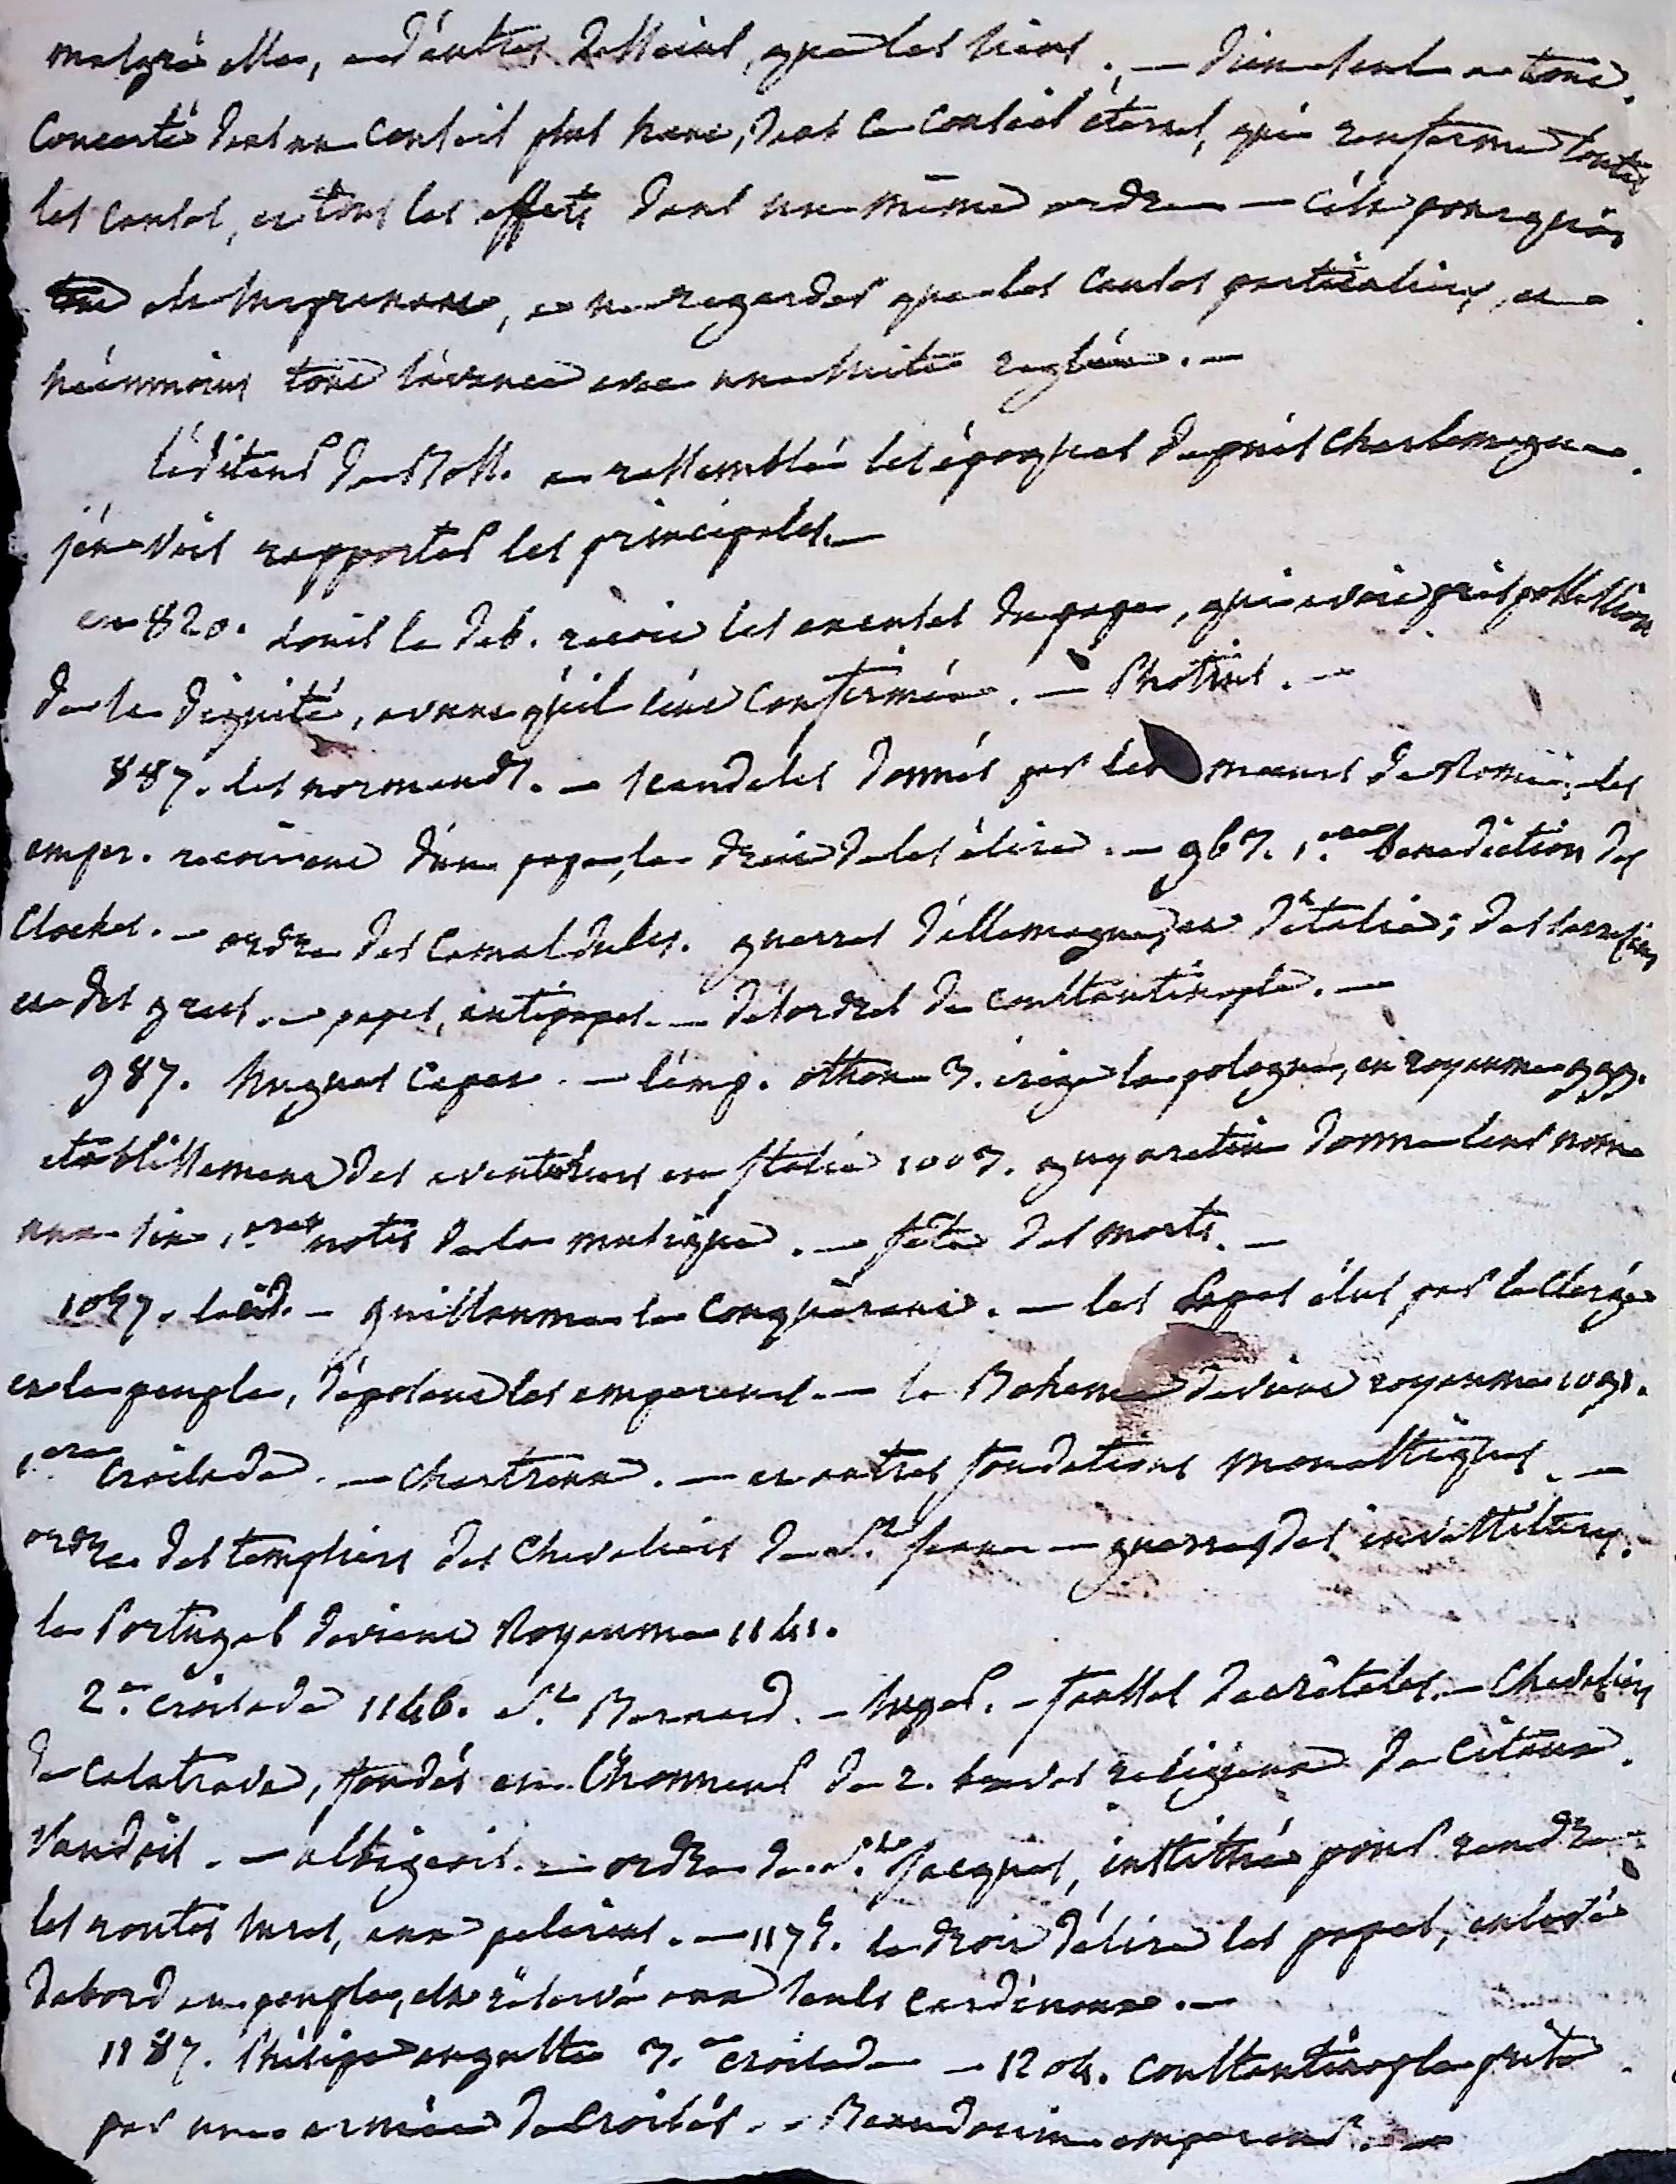 malgré elle, a d'autres desseins, que les siens. — Dieu seul a tout
concerté dans un conseil plus haut, dans ce conseil éternel, qui renferme toutes
les causes, et tous les effets dans un même ordre — c'est pourquoi
tout est surprenant, a ne regarder que les causes particulières, et
néanmoins tout s'avance avec une suite reglée. —
l'éditeur de Boss. a rassemblé les époques depuis Charlemagne.
j'en vais rapporter les principales. —
en 820. Louis le deb. recoit les excuses du pape, qui avoit pris possession
de sa dignité, avant qu'il l'eut confirmée. — Photius. —
887. les normands. — scandales donnés par les moeurs de Rome; les
emper. recoivent d'un pape, le droit de les élire. — 967. 1.ere benediction des
cloches. — ordre des Camaldules. guerres d'allemagne, et d'italie; des sarrasins
et des grecs. — papes, antipapes. — désordres de constantinople. —
987. hugues Capet. — l'emp. othon 3. érige la pologne, en royaume 999.
etablissement des aventuriers en Italie 1003. guy aretin donne leurs noms
aux six 1.eres notes de la musique. — fête des morts. —
1057. le cid. — guillaume le conquérant. — les Papes élus par le Clergé
et le peuple, déposent les empereurs. — la Boheme devient royaume 1091.
1.ere croisade. — chartreux. — et autres fondations monastiques. —
ordre des templiers des chevaliers de S.t Jean — guerres des investitures.
le Portugal devient Royaume 1141.
2.e croisade 1146. S.t Bernard. — Suger. — fausses decrétales. — Chevaliers
de calatrava, fondés en l'honneur de 2. braves religieux de Citeaux.
Vaudois. — albigeois. — ordre de S.t Jacques, institué pour rendre
les routes sures, aux pelerins. — 1179. le droit d'élire les papes, enlevé
d'abord au peuple, est réservé aux seuls cardinaux. —
1187. Philippe auguste 3.e croisade — 1204. Constantinople prise
par une armée de Croisés. — Baudouin empereur. —